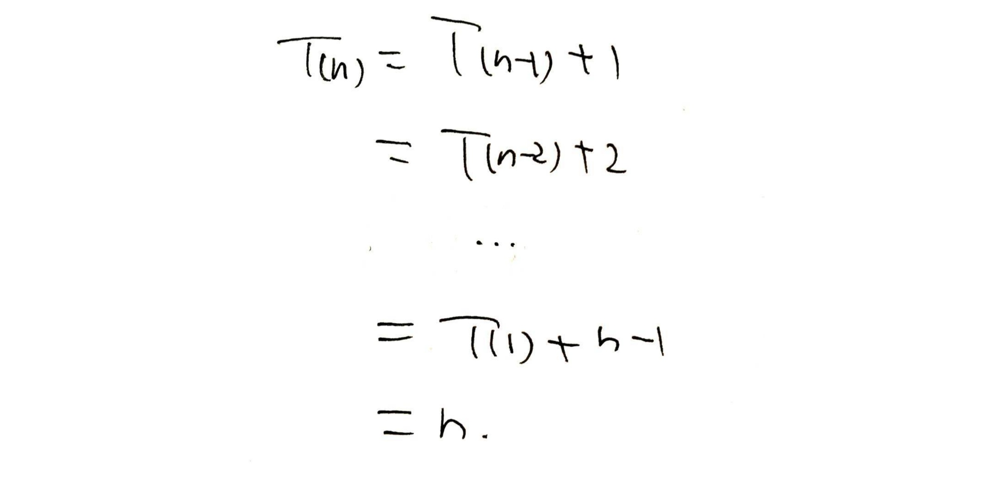 T(n) = T(n-1) + 1
= T(n-2) + 2
...
= T(1) + n-1
= n.